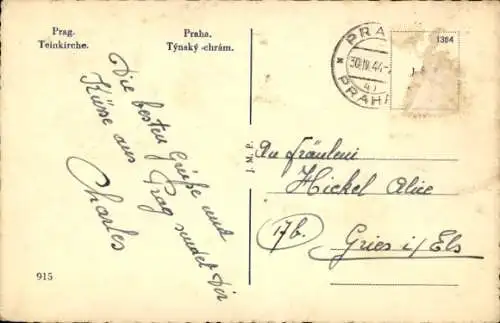 Prag.
Teinkirche.
Praha.
Týnský-chrám.
Die besten Grüße und
Küsse aus Prag sendet Dir
Charles
915
J. M. P.
PRA
30.IV.44-
PRAHA
1364
An Fräulein
Hickel Alice
17b.
Gries i/Els